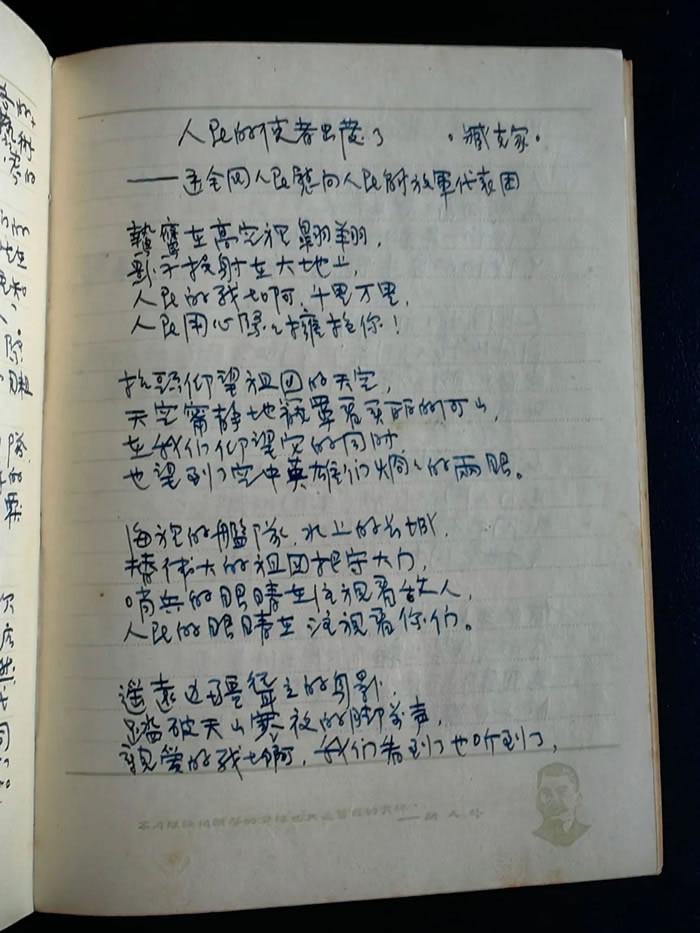 人民的使者出发了 · 臧克家 ·
——送全国人民慰问人民解放軍代表团
鷙鷹在高空裡翱翔，
影子投射在大地上，
人民的战士啊，千里万里，
人民用心隊々擁抱你！
抬頭仰望祖国的天空，
天空甯静地籠罩着美丽的河山，
在我们仰望它的同时
也望到了空中英雄们炯々的兩眼。
海裡的艦隊，水上的长城，
替伟大的祖国把守大门，
哨兵的眼睛在注视着敌人，
人民的眼睛在注视着你们。
遥远边疆聳立的身影，
踏破天山寒夜的脚步声，
親爱的战士啊，我们看到了也听到了，